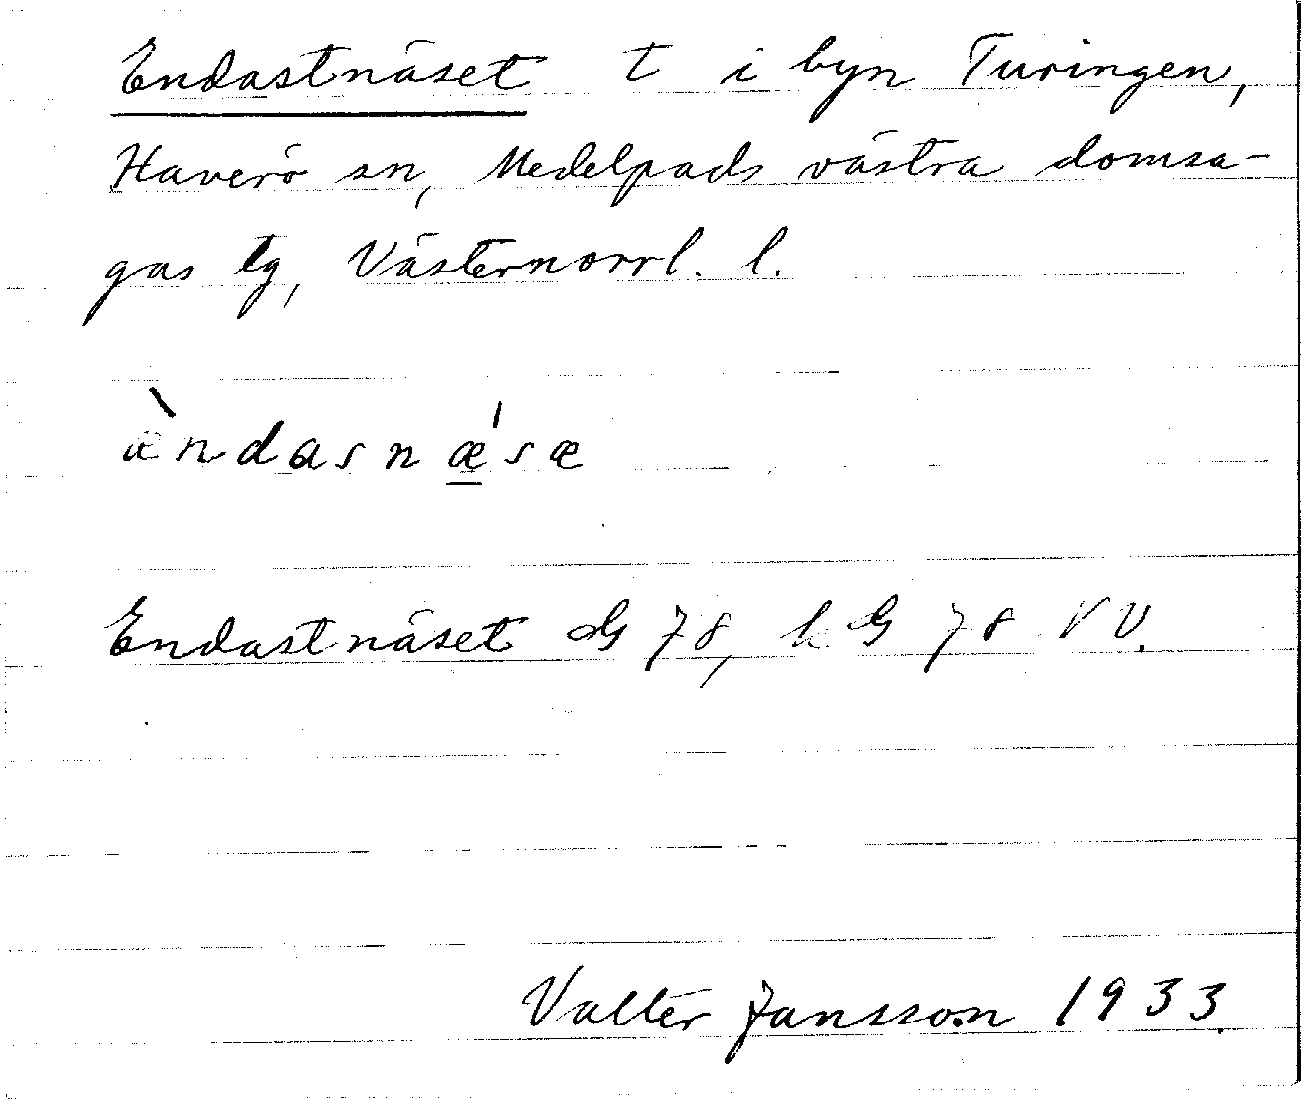 Endastnäset t i byn Turingen,
Haverö sn, Medelpads västra domsa-
gas tg, Västernorrl. l.
æ̀ndasnǽ̲sæ
Endastnäset G 78, k G 78 V V.
Valter Jansson 1933.